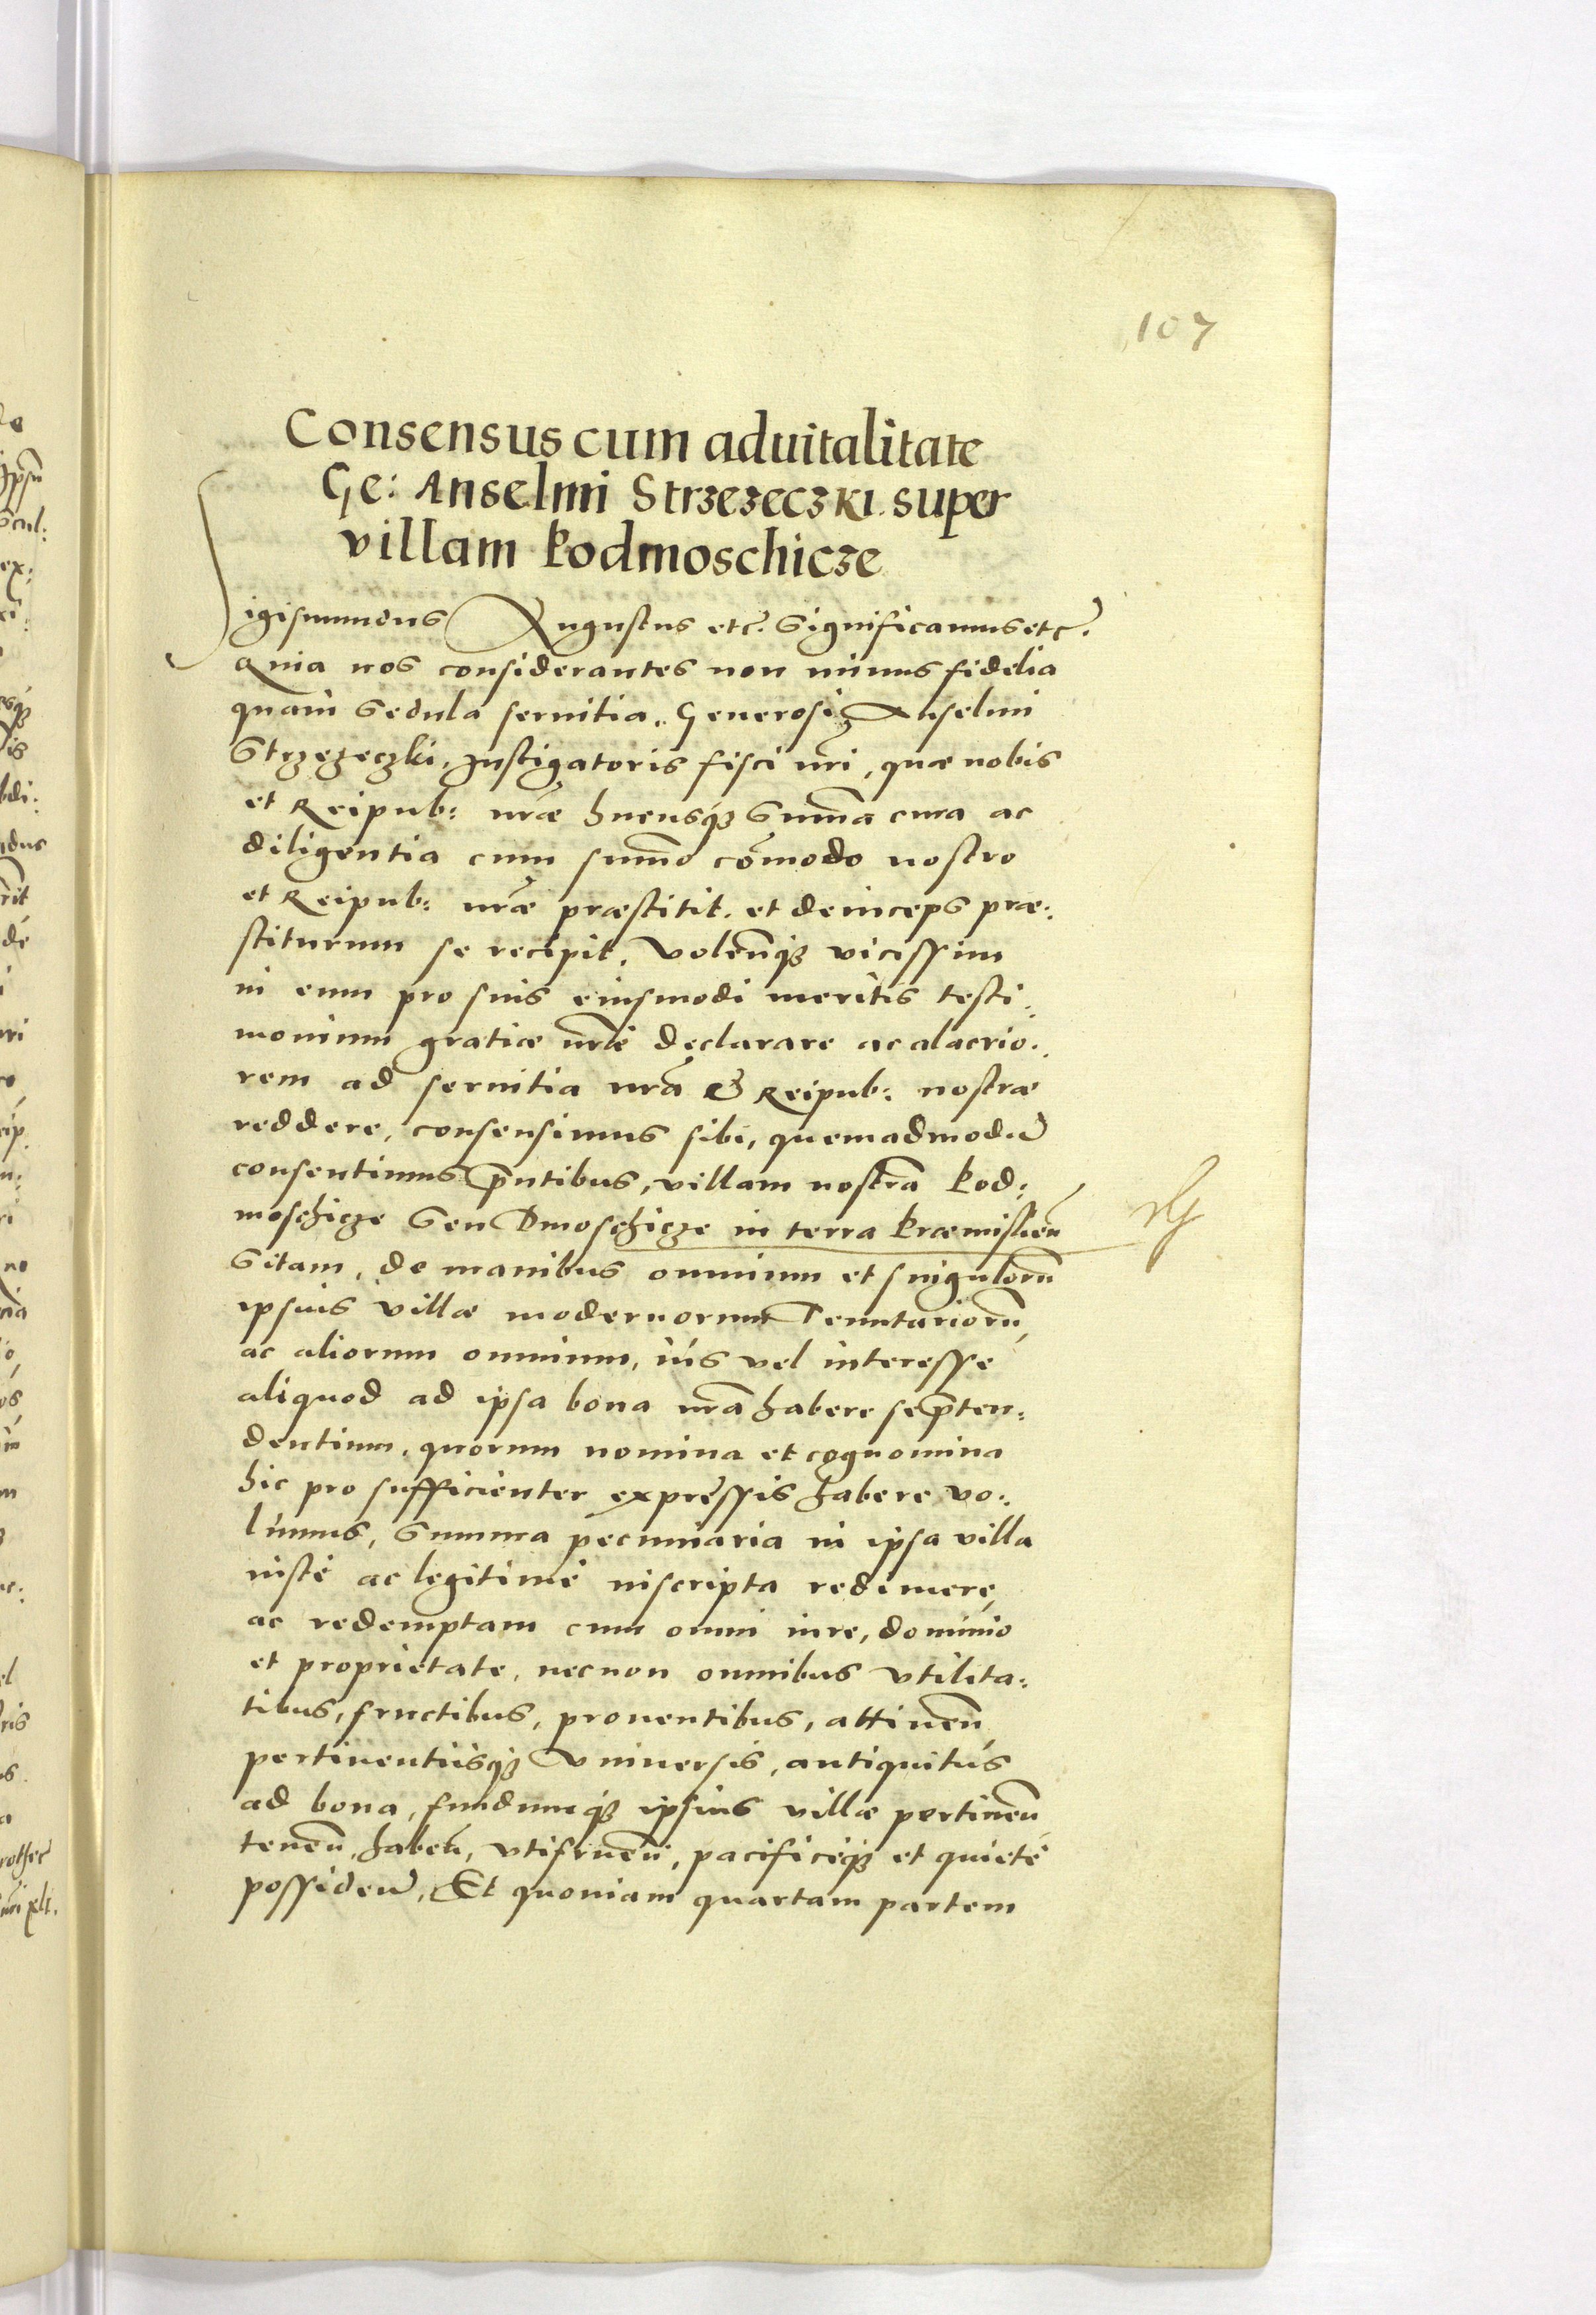 107
Consensus cum aduitalitate
Ge: Anselmi Strzezeczki super
villam Rodmoschicze
Sigismundus Augustus etc. Significamus etc.
Quia nos considerantes non minus fidelia
quam sedula seruitia Generosi Anselmi
Strzezeczki, Instigatoris fisci nr̃i, quæ nobis
et Reipub: nr̃æ hucusq₃ summa cura ac
diligentia cum sum̃o com̃odo nostro
et Reipub: nr̃æ præstitit, et deinceps præ:
stiturum se recipit. Volen̄q₃ vicissim
in eum pro suis eiusmodi meritis testi:
monium gratiæ nr̃e declarare ac alacrio:
rem ad seruitia nr̃a & Reipub: nostræ
reddere, consensimus sibi, quemadmodũ
consentimus p̃ntibus, villam nostrã Rod:
moschicze seu Dmoschicze in terra Præmislieñ
sitam, de manibus omnium et singulorũ
ipsius villæ modernorum Tenutariorũ,
ac aliorum omnium, iùs vel interesse
aliquod ad ipsa bona nr̃a habere se p̃ten:
dentium, quorum nomina et cognomina
hic pro sufficienter expressis habere vo:
lumus, summa pecuniaria in ipsa villa
iustè ac legitimè inscripta redimere,
ac redemptam cum omni iure, dominio
et proprietate, necnon omnibus vtilita:
tibus, fructibus, prouentibus, attineñ,
pertinentiisq₃ vniuersis, antiquitùs
ad bona, fundumq₃ ipsius villæ pertineñ
teneñ, habeñ, vtifrueñ, pacificeq₃ et quietè
possideñ. Et quoniam quartam partem